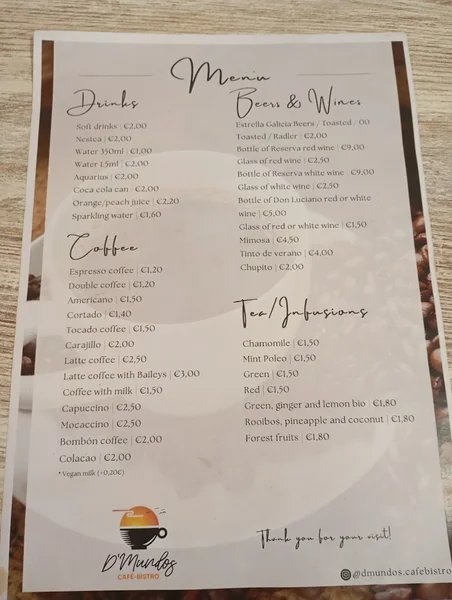 Menu
Drinks
Soft drinks | €2,00
Nestea | €2,00
Water 350ml | €1,00
Water 1.5ml | €2,00
Aquarius | €2,00
Coca cola can | €2,00
Orange/peach juice | €2,20
Sparkling water | €1,60
Coffee
Espresso coffee | €1,20
Double coffee | €1,20
Americano | €1,50
Cortado | €1,40
Tocado coffee | €1,50
Carajillo | €2,00
Latte coffee | €2,50
Latte coffee with Baileys | €3,00
Coffee with milk | €1,50
Capuccino | €2,50
Mocaccino | €2,50
Bombón coffee | €2,00
Colacao | €2,00
*Vegan milk (+0,20€)
Beers & Wines
Estrella Galicia Beers / Toasted / 00
Toasted / Radler | €2,00
Bottle of Reserva red wine | €9,00
Glass of red wine | €2,50
Bottle of Reserva white wine | €9,00
Glass of white wine | €2,50
Bottle of Don Luciano red or white
wine | €5,00
Glass of red or white wine | €1,50
Mimosa | €4,50
Tinto de verano | €4,00
Chupito | €2,00
Tea/Infusions
Chamomile | €1,50
Mint Poleo | €1,50
Green | €1,50
Red | €1,50
Green, ginger and lemon bio | €1,80
Rooibos, pineapple and coconut | €1,80
Forest fruits | €1,80
D'Mundos
CAFÉ-BISTRO
Thank you for your visit!
@dmundos.cafebistro